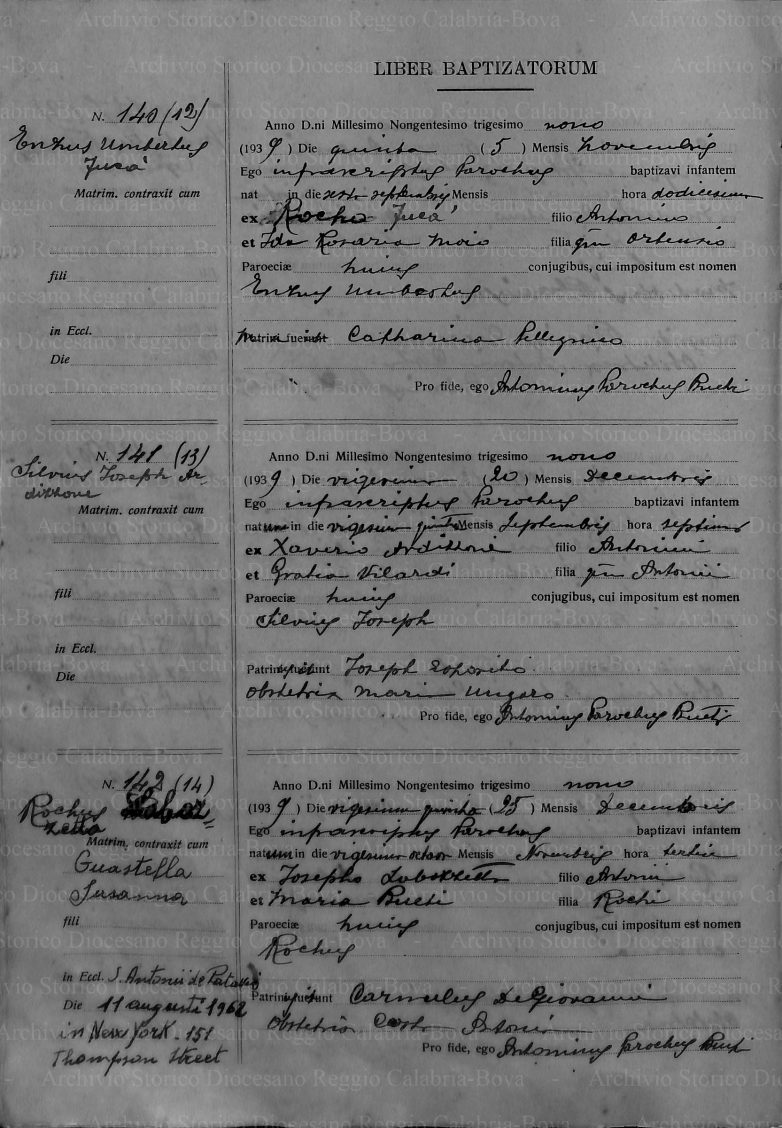 LIBER BAPTIZATORUM
N. 140 (12)
Enzus Umbertus
Jucá
Matrim. contraxit cum
fili
in Eccl.
Die
Anno D.ni Millesimo Nongentesimo trigesimo nono
(1939) Die quinta (5) Mensis Novembris
Ego infrascriptus Parochus baptizavi infantem
nat in die sexta septembris Mensis hora dodicesima
ex Rocho Jucá filio Antonino
et Ida Rosaria Moio filia qm Ortensio
Paroeciæ huius conjugibus, cui impositum est nomen
Enzus Umbertus
Patrini fuerunt Catharina Pellegrino
Pro fide, ego Antoninus Parochus Pucti
N. 141 (13)
Silvius Joseph Ar-
dizzone
Matrim. contraxit cum
fili
in Eccl.
Die
Anno D.ni Millesimo Nongentesimo trigesimo nono
(1939) Die vigesima (20) Mensis Decembris
Ego infrascriptus Parochus baptizavi infantem
natum in die vigesima quinta Mensis Septembris hora septima
ex Xaverio Ardizzone filio Antonini
et Gratia Vilardi filia qm Antonii
Paroeciæ huius conjugibus, cui impositum est nomen
Silvius Joseph
Patrini fuerunt Joseph Esposito
Obstetrix Maria Ungaro
Pro fide, ego Antoninus Parochus Pucti
N. 142 (14)
Rochus Laboz=
zetta
Matrim. contraxit cum
Guastella
Susanna
fili
in Eccl. S. Antonii de Patavii
Die 11 augusti 1962
in New York - 151
Thompson Street
Anno D.ni Millesimo Nongentesimo trigesimo nono
(1939) Die vigesima quinta (25) Mensis Decembris
Ego infrascriptus Parochus baptizavi infantem
natum in die vigesima octava Mensis Novembris hora tertia
ex Josepho Labozzetta filio Antonii
et Maria Pucti filia Rochi
Paroeciæ huius conjugibus, cui impositum est nomen
Rochus
Patrini fuerunt Carmelus De Giovanni
Obstetrix Costa Antonia
Pro fide, ego Antoninus Parochus Pucti
Archivio Storico Diocesano Reggio Calabria-Bova